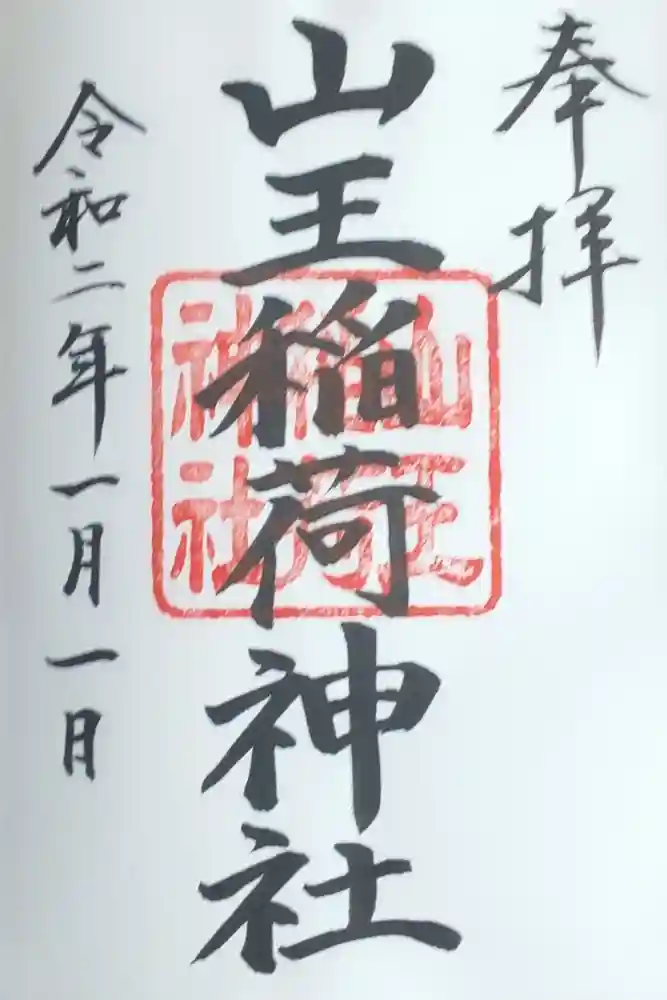 奉拝
山王稲荷神社
山王
稲荷
神社
令和二年一月一日